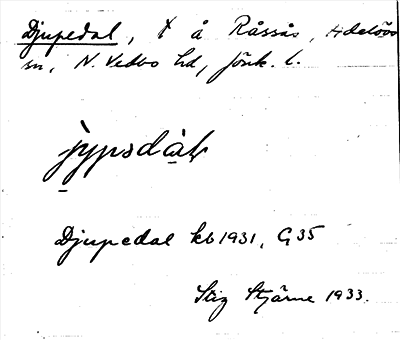 Djupedal, t å Råssås, Adelöv
sn, N. Vedbo hd, Jönk. l.
jypsdàḷ
Djupedal kb 1931, G35
Stig Stjärne 1933.